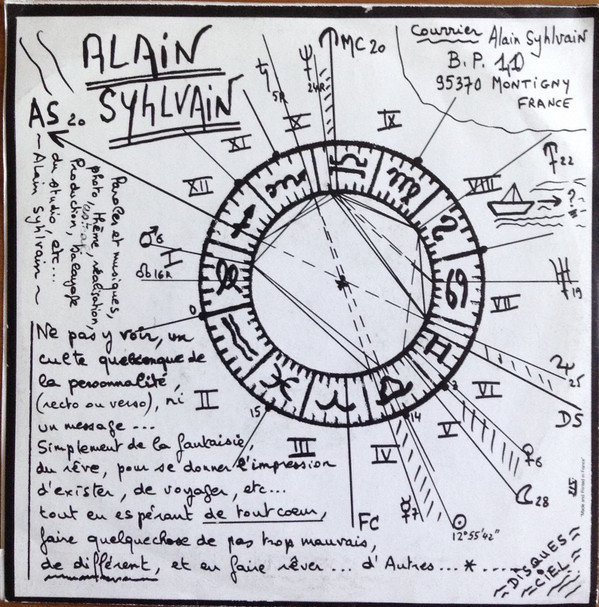 ALAIN
SYHLVAIN
Courrier Alain Syhlvain
B.P. 11
95370 MONTIGNY
FRANCE
MC 20
AS 20
5R
24R
X
IX
XI
XII
VIII
22
?
Paroles et musiques,
photo, thème, réalisation,
Production, balayage
du studio, etc...
~ Alain Syhlvain ~
6
16R
19
VII
0
25
DS
VI
3
II
15
III
IV
14
V
6
28
7
12°55'42"
FC
Ne pas y voir, un
culte quelconque de
la personnalité,
(recto ou verso), ni
un message ...
Simplement de la fantaisie,
du rêve, pour se donner l'impression
d'exister, de voyager, etc...
tout en espérant de tout coeur,
faire quelquechose de pas trop mauvais,
de différent, et en faire rêver ... d'Autres ... *
DISQUES
CIEL
"Made and Printed in France"